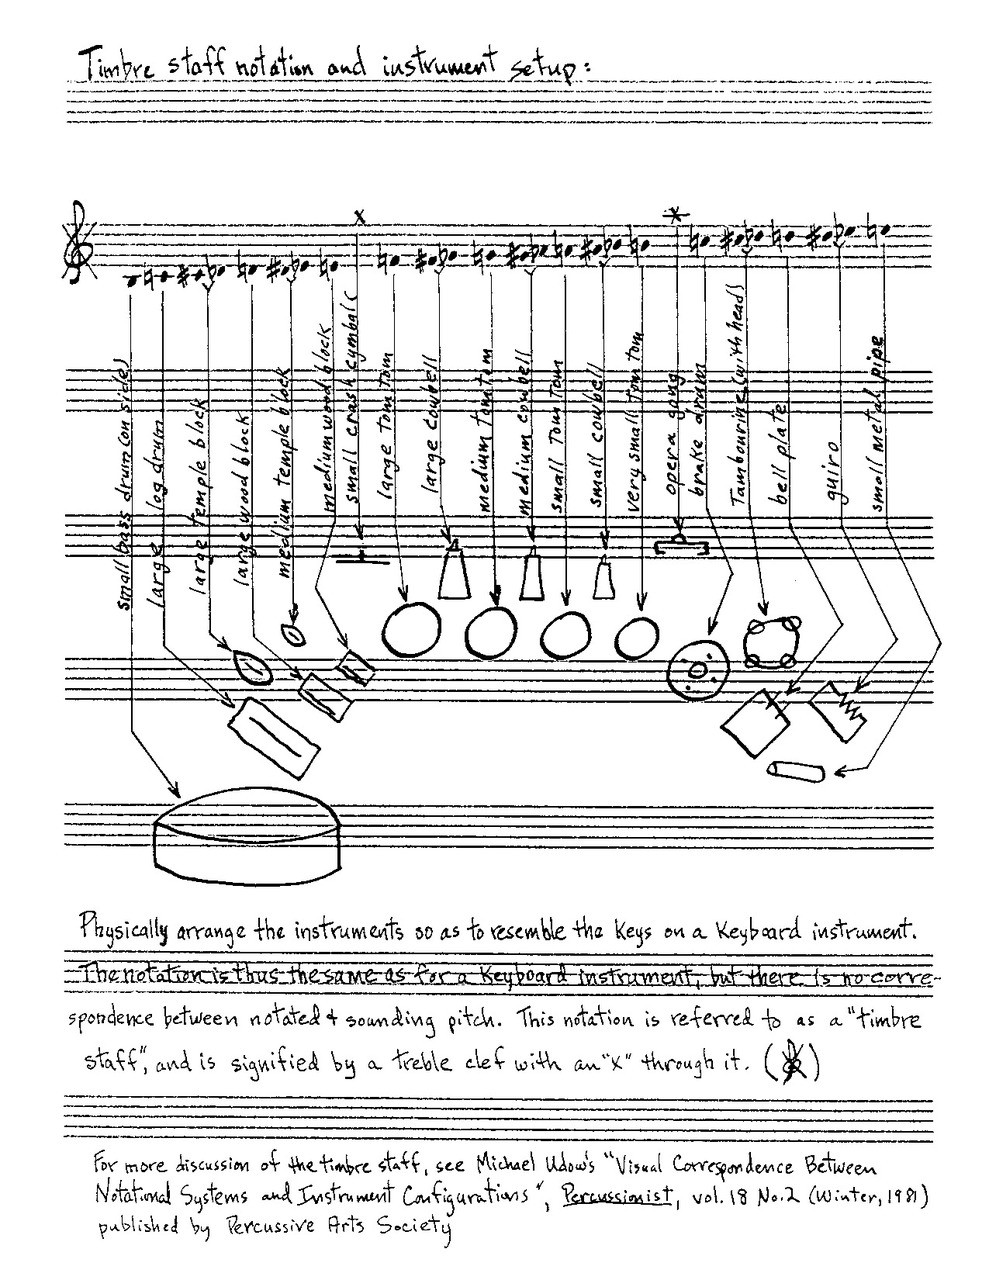 Timbre staff notation and instrument setup:
small bass drum (on side)
large log drum
large temple block
large wood block
medium temple block
medium wood block
small crash cymbal
large tom tom
large cowbell
medium tom tom
medium cowbell
small tom tom
small cowbell
very small tom tom
opera gong
brake drum
Tambourine (with head)
bell plate
guiro
small metal pipe
Physically arrange the instruments so as to resemble the keys on a keyboard instrument.
The notation is thus the same as for a keyboard instrument, but there is no corre-
spondence between notated & sounding pitch. This notation is referred to as a "timbre
staff", and is signified by a treble clef with an "x" through it. ( )
For more discussion of the timbre staff, see Michael Udow's "Visual Correspondence Between
Notational Systems and Instrument Configurations", Percussionist, vol. 18 No. 2 (Winter, 1981)
published by Percussive Arts Society